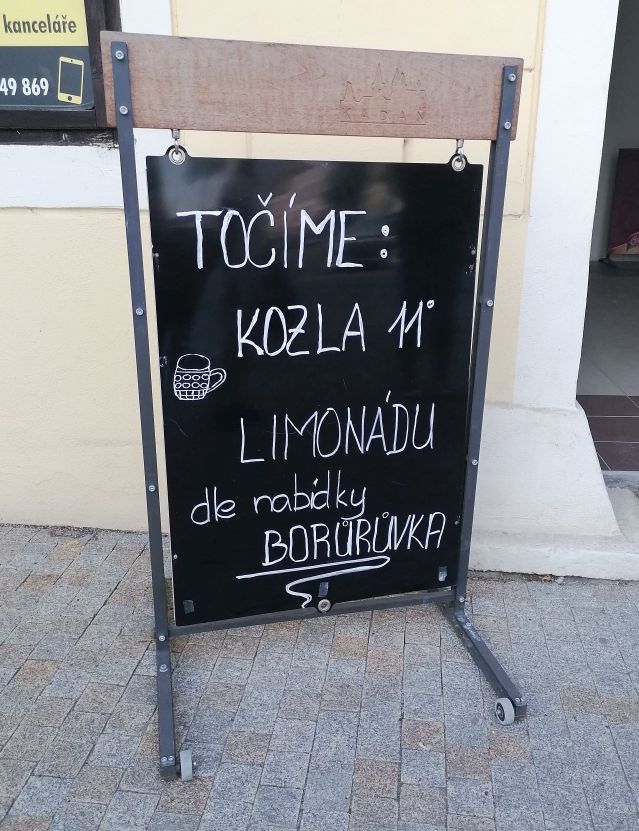 kanceláře
49 869
KADAŇ
TOČÍME:
KOZLA 11°
LIMONÁDU
dle nabídky
BORŮRŮVKA